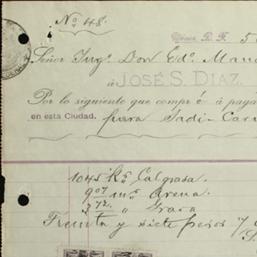 No. 48.
México D. F. 5
Señor Ingo. Don Edo. Manc
á JOSÉ S. DIAZ.
Por lo siguiente que compré á paga
en esta Ciudad. para Sadi-Car
1045 Ks. Cal grasa.
907 ms. Arena.
3 72 " Grava
Treinta y siete pesos 7